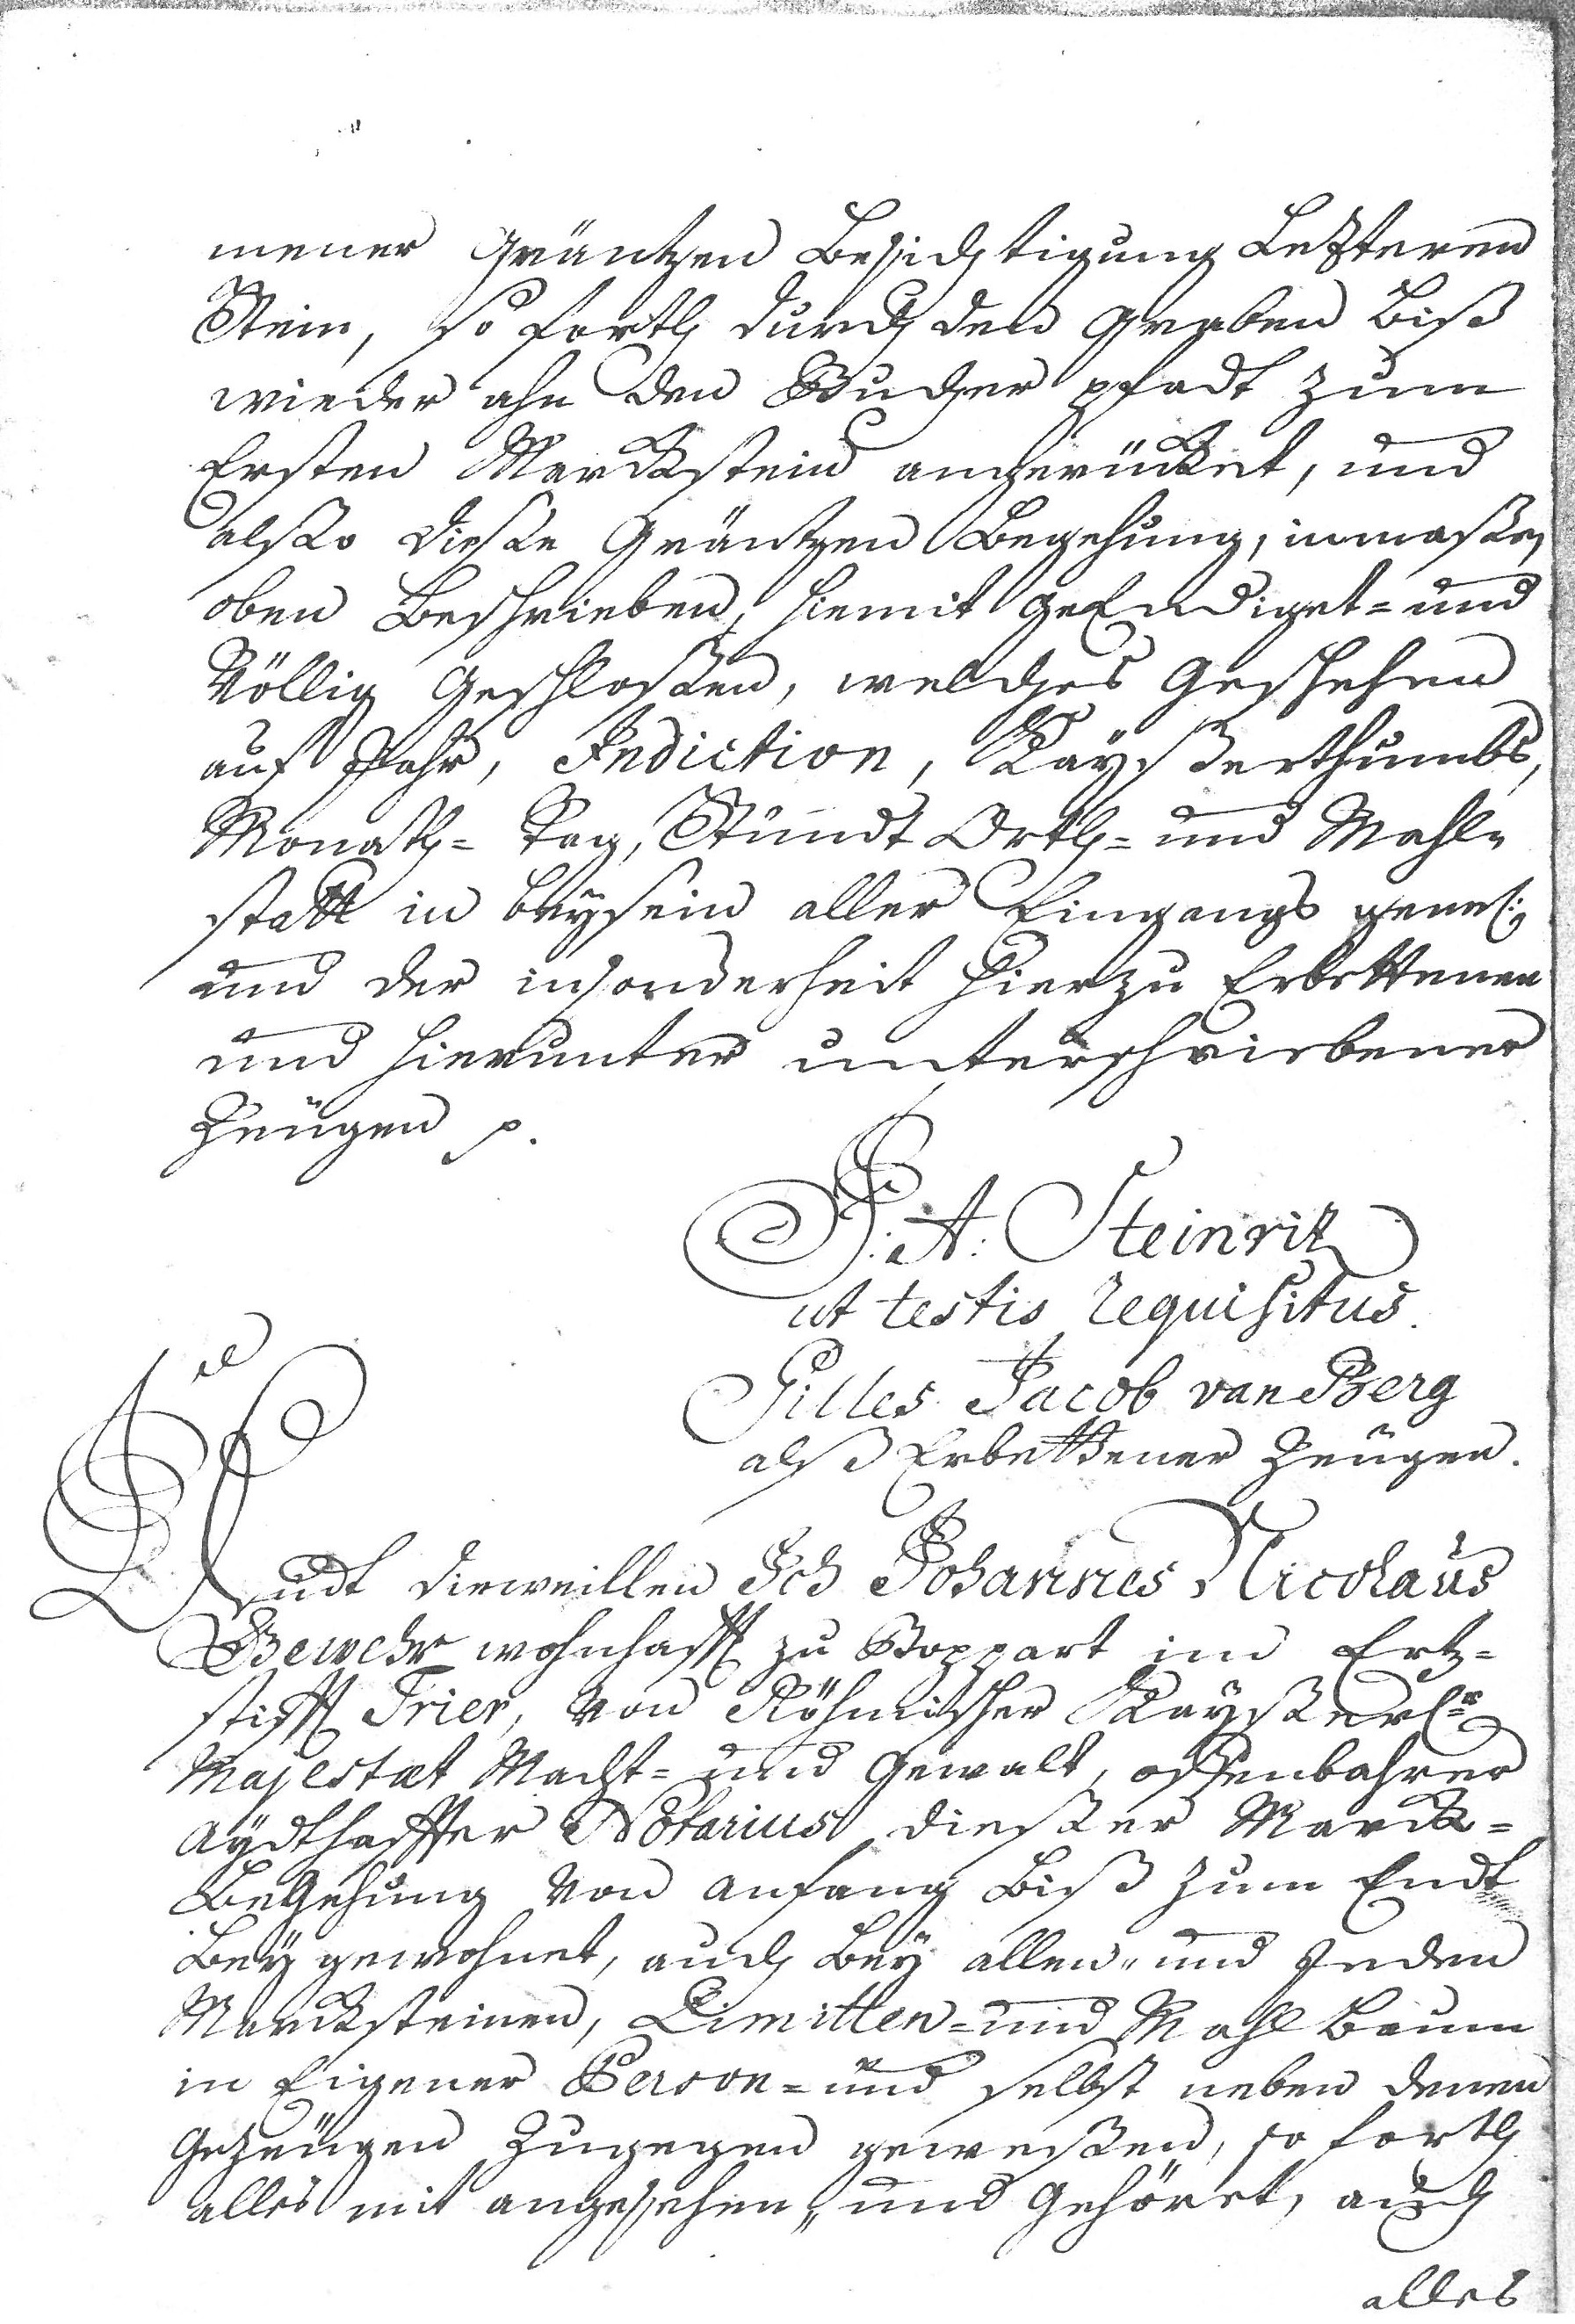 mener Gräntzen Besichtigung Letzteren
Stein, so forth durch den Graben Biß
wieder ahn den Bucher pfadt zum
Ersten Marckstein angerücket, und
alßo dieße Gräntzen Begehung, inmaßen
oben Beschrieben, hiemit geEndiget= und
Völlig Geschloßen, welches Geschehen
auf Jahr, Indiction, Kayßerthumbs,
Monath= Tag, Stundt Orth= und Mahl=
statt in beÿsein aller Eingangs gemel:
und der insonderheit hierzu Erbettenen
und hierunter unterschriebener
Zeügen p.
J: A: Steinritz
ut testis requisitus.
Gilles Jacob van Berg
alß Erbettener Zeügen.
Undt dieweillen Ich Johannes Nicolaus
Bewehr wohnhafft zu Boppart im Ertz=
stifft Trier, Von Röhmischer Kayßerlr.
Majestæt Macht= und Gewalt, offenbahrer
aÿdthaffter Notarius dießer Marck=
BeGehung Von anfang Biß zum Endt
Beÿ gewohnet, auch Beÿ allen= und Jeden
Marcksteinen, Limitten= und Mahl Baum
in Eigener Person= und selbst neben denen
Gezeügen Zugegen geweßen, so forth
alles mit angesehen, und Gehöret, auch
alles